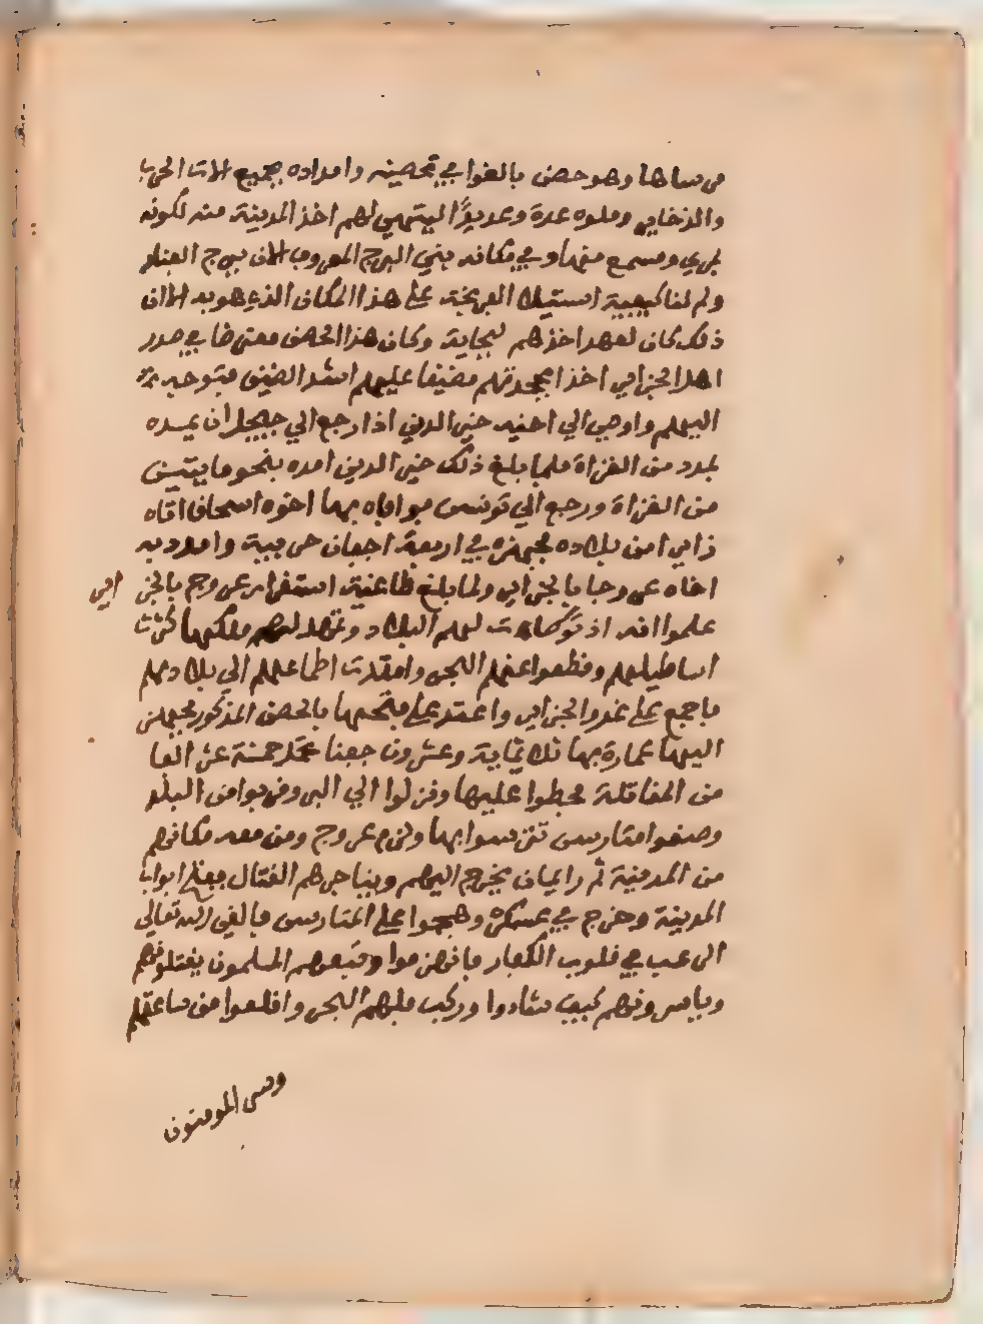 مرساها وهو حصن بالغوا في تحصينه وامداده بجميع الات الحرب
والذخاير وملوه عدة وعديدًا ليتهيى لهم اخذ المدينة منه لكونه
بمرءى ومسمع منها وفي مكانه بني البرج المعروف الان ببرج الفنار
ولم لنا كيفية استيلا الفرنجة على هذا المكان الذي هو به الاان
ذلك كان لعهد اخذهم لبجاية وكان هذا الحصن معترضا في صدر
اهل الجزاير اخذا بمخنقهم مضيقا عليهم اشد الضيق فتوجه
اليهم واوصى الى اخيه خير الدين اذا رجع الى جيجل ان يمده
بمدد من الغزاة فلما بلغ ذلك خير الدين امده بنحو مايتين
من الغزاة ورجع الى تونس فوافاه بها اخوه اسحاق اتاه
زايرا من بلاده فجهزه في اربعة اجفان حربية وامد به
اخاه عروجا بالجزاير ولما بلغ طاغية استقرار عروج بالجزاير
علموا انه اذ توطات لهم البلاد وتمهد لهم ملكها كثرت
اساطيلهم وقطعوا عنهم البحر وامتدت اطماعهم الى بلادهم
فاجمع على غزو الجزاير واعتمد على فتحها بالحصن المذكور فجهز
اليها عمارة بها ثلاثماية وعشرون جفنا تحمل خمسة عشر الفا
من المقاتلة فحطوا عليها ونزلوا الى البر وقربوا من البلد
وصنعوا متاريس تترسوا بها ولزم عروج ومن معه مكانهم
من المدينة ثم را ان يخرج اليهم ويناجزهم القتال ففتح ابواب
المدينة وخرج في عسكره وهجموا على المتاريس فالقى الله تعالى
الرعب في قلوب الكفار فانهزموا وتبعهم المسلمون يقتلونهم
وياسرونهم كيف شاءوا وركب فلهم البحر واقلعوا من ساعتهم
وسر المومنون